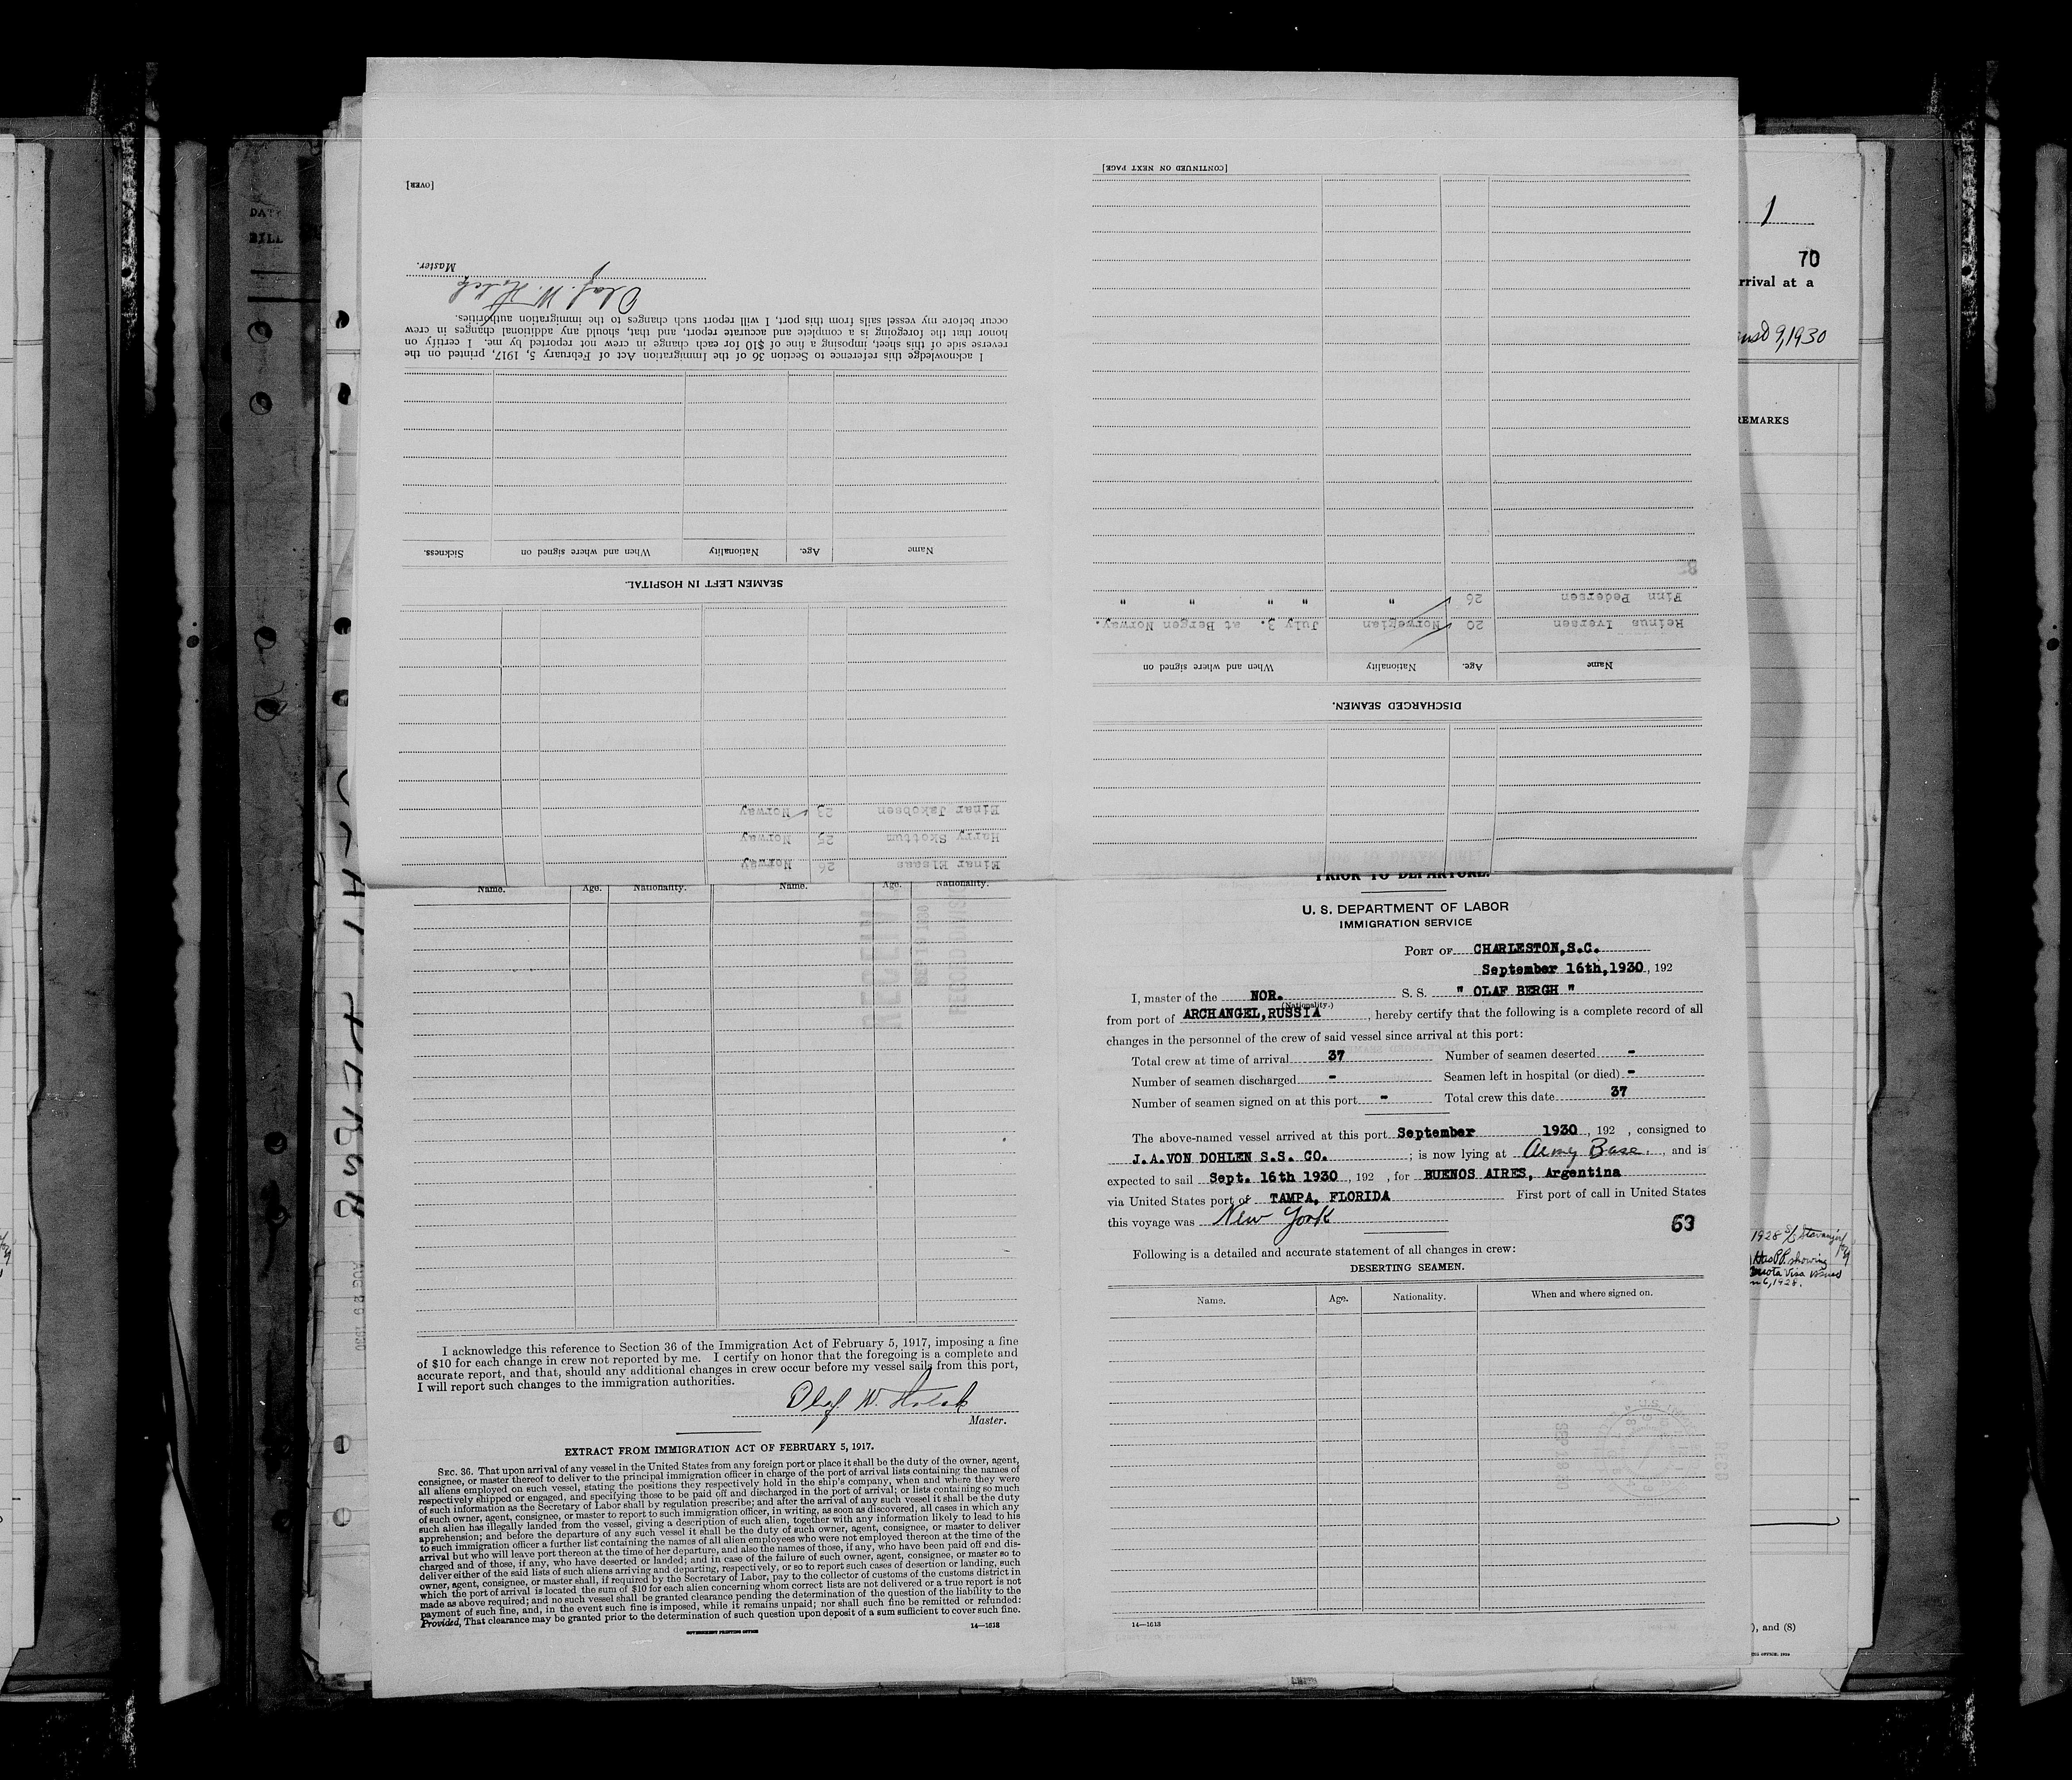 DATE
BILL
1
70
rrival at a
9, 1930
REMARKS
[CONTINUED ON NEXT PAGE]
DISCHARGED SEAMEN.
Name Age. Nationality When and where signed on
Reinus Iversen 20 Norwegian July 3. at Bergen Norway.
Finn Pedersen 26 " " " " " "
Einar Elsaas 26 Norway
Harry Skottum 25 Norway
Einar Jakobsen 23 Norway
SEAMEN LEFT IN HOSPITAL.
Name Age. Nationality When and where signed on Sickness.
I acknowledge this reference to Section 36 of the Immigration Act of February 5, 1917, printed on the
reverse side of this sheet, imposing a fine of $10 for each change in crew not reported by me. I certify on
honor that the foregoing is a complete and accurate report, and that, should any additional changes in crew
occur before my vessel sails from this port, I will report such changes to the immigration authorities.
Olaf. W.
Master.
[OVER]
Name. Age. Nationality. Name. Age. Nationality.
I acknowledge this reference to Section 36 of the Immigration Act of February 5, 1917, imposing a fine
of $10 for each change in crew not reported by me. I certify on honor that the foregoing is a complete and
accurate report, and that, should any additional changes in crew occur before my vessel sails from this port,
I will report such changes to the immigration authorities.
Olaf W.
Master.
EXTRACT FROM IMMIGRATION ACT OF FEBRUARY 5, 1917.
SEC. 36. That upon arrival of any vessel in the United States from any foreign port or place it shall be the duty of the owner, agent,
consignee, or master thereof to deliver to the principal immigration officer in charge of the port of arrival lists containing the names of
all aliens employed on such vessel, stating the positions they respectively hold in the ship's company, when and where they were
respectively shipped or engaged, and specifying those to be paid off and discharged in the port of arrival; or lists containing so much
of such information as the Secretary of Labor shall by regulation prescribe; and after the arrival of any such vessel it shall be the duty
of such owner, agent, consignee, or master to report to such immigration officer, in writing, as soon as discovered, all cases in which any
such alien has illegally landed from the vessel, giving a description of such alien, together with any information likely to lead to his
apprehension; and before the departure of any such vessel it shall be the duty of such owner, agent, consignee, or master to deliver
to such immigration officer a further list containing the names of all alien employees who were not employed thereon at the time of the
arrival but who will leave port thereon at the time of her departure, and also the names of those, if any, who have been paid off and dis-
charged and of those, if any, who have deserted or landed; and in case of the failure of such owner, agent, consignee, or master so to
deliver either of the said lists of such aliens arriving and departing, respectively, or so to report such cases of desertion or landing, such
owner, agent, consignee, or master shall, if required by the Secretary of Labor, pay to the collector of customs of the customs district in
which the port of arrival is located the sum of $10 for each alien concerning whom correct lists are not delivered or a true report is not
made as above required; and no such vessel shall be granted clearance pending the determination of the question of the liability to the
payment of such fine, and, in the event such fine is imposed, while it remains unpaid; nor shall such fine be remitted or refunded:
Provided, That clearance may be granted prior to the determination of such question upon deposit of a sum sufficient to cover such fine.
GOVERNMENT PRINTING OFFICE 14—1618
PRIOR TO DEPARTURE.
U. S. DEPARTMENT OF LABOR
IMMIGRATION SERVICE
PORT OF CHARLESTON,S.C.
September 16th,1930, 192
I, master of the NOR. S. S. " OLAF BERGH "
(Nationality.)
from port of ARCHANGEL,RUSSIA, hereby certify that the following is a complete record of all
changes in the personnel of the crew of said vessel since arrival at this port:
Total crew at time of arrival 37 Number of seamen deserted -
Number of seamen discharged - Seamen left in hospital (or died) -
Number of seamen signed on at this port - Total crew this date 37
The above-named vessel arrived at this port September 1930, 192 , consigned to
J.A.VON DOHLEN S.S. CO. ; is now lying at Army Base., and is
expected to sail Sept. 16th 1930, 192 , for BUENOS AIRES, Argentina
via United States port of TAMPA, FLORIDA First port of call in United States
this voyage was New York
63
Following is a detailed and accurate statement of all changes in crew:
DESERTING SEAMEN.
Name. Age. Nationality. When and where signed on.
14—1618
1928 S/S Stavangerfj
Has P.P. showing
quota visa issued
6, 1928.
), and (8)
AUG 29 1930